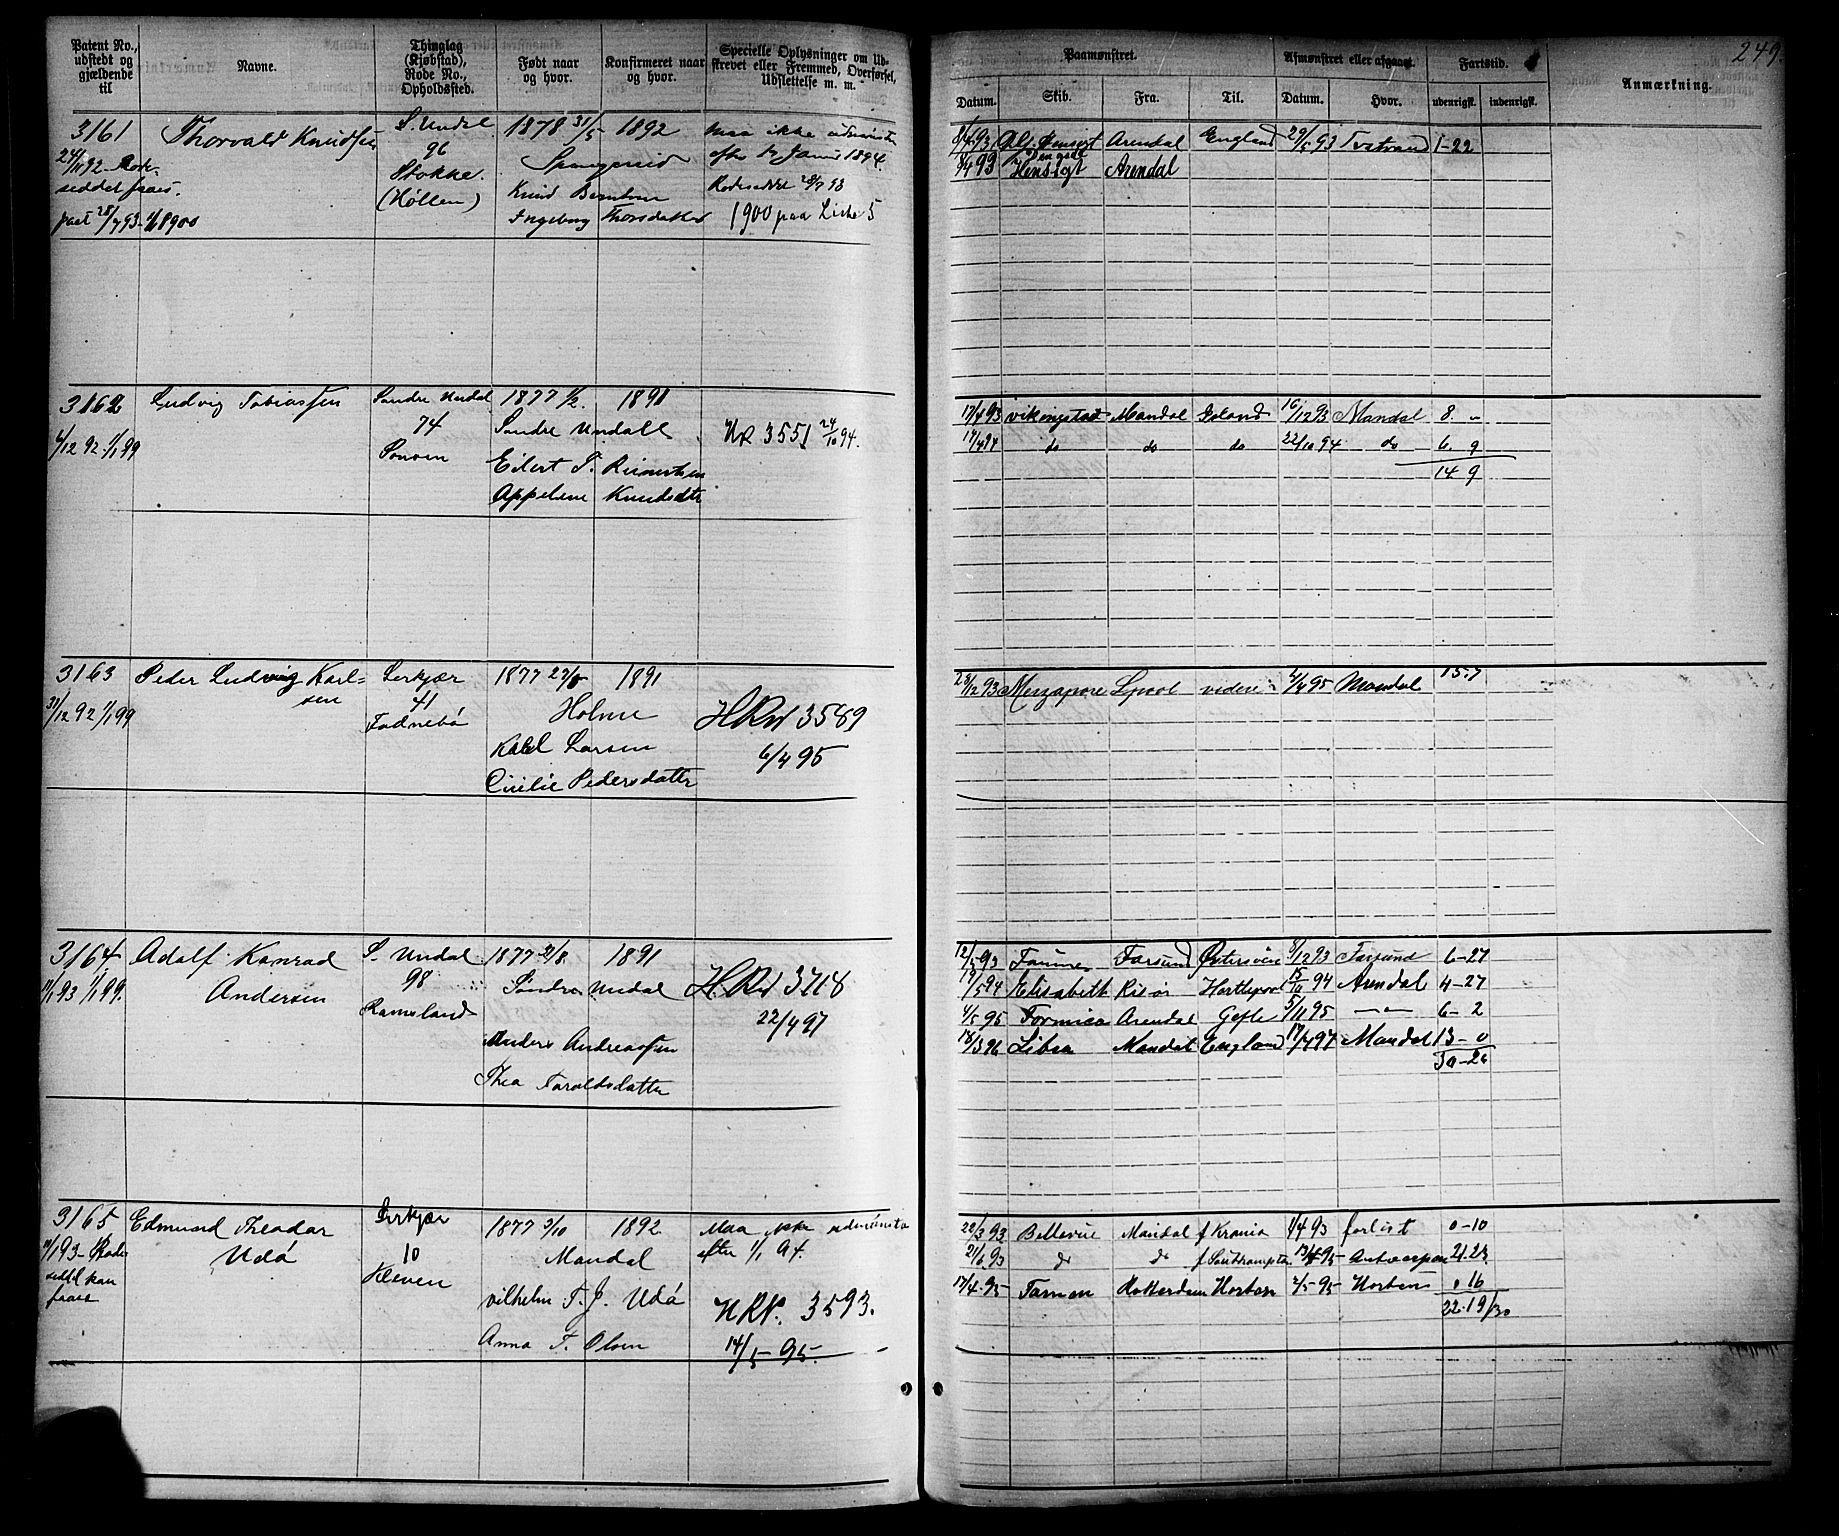 249.
Patent No., udstedt og gjældende til
Navne.
Thinglag (Kjøbstad), Rode No., Opholdssted.
Født naar og hvor.
Konfirmeret naar og hvor.
Specielle Oplysninger om Udstrevet eller Fremmed, Overførsel, Udslettelse m. m.
Paamønstret.
Afmønstret eller afgaaet.
Fartstid.
Anmærkning.
Datum. Skib. Fra. Til. Datum. Hvor. udenrigsk. indenrigsk.
3161 Thorvald Knudsen S. Undal 1878 31/5 1892
96
Stokke.
(Høllen)
24/11 92
Knud Berntsen
Ingeborg Thorsdatter
Maa ikke
efter 1/7 Januar 1894.
Rodeseddel 28/7 93
1900 paa Liste 5
Arendal England 29/5 93 Tvestrand 1-22
8/4 93 Hensigt Arendal
3162 Ludvig Tobiassen Søndre Undal 1877 1/2. 1891
74
6/12 92 1/1 99
Søndre Undall
Eilert T. Reinertsen
Appelene Knudsdtr
HR 3551 24/10 94.
17/4 93 Vikingstad Mandal Island 16/12 93 Mandal 8. "
17/4 94 do do do 22/10 94 do 6. 9
14 9
3163 Peder Ludvig Karlsen 1877 1891
41
31/12 92 1/1 99
Holme
Karl Larsen
Cicilie Pedersdatter
HRN 3589
6/4 95
23/12 93 Merzapore Lpool videre 4/4 95 Mandal 15.7
3164 Adolf Konrad Andersen S. Undal 1877 1891
98
11/1 93 1/1 99.
Rameland
Søndre Undal
Anders Andreassen
Thea Taraldsdatter
22/4 97
12/5 93 Farsund Østersøen 8/12 93 Farsund 6-27
19/5 94 Elisabeth Risør Hartlepool 15/11 94 Arendal 4-27
4/5 95 Formica Arendal Gefle 5/11 95 —"— 6-2
18/3 96 Libra Mandal England 17/4 97 Mandal 13-0
3165 Edmund Theodor Udö 1877 1892
10
Kleven
11/1 93 - Rodeseddel kan faaes
Mandal
Vilhelm T. J. Udö
Anna T. Olsen
Maa ikke udmønstres
efter 1/1 94.
HRN. 3593.
14/5-95.
22/3 93 Bellevue Mandal f Krania 1/4 93 forlist 0-10
21/6 93 do do f Southampton 13/4 95 Antwerpen 21.23
17/4-95 Rotterdam Horten 2/5-95 Hortens 0 16
22.19/30